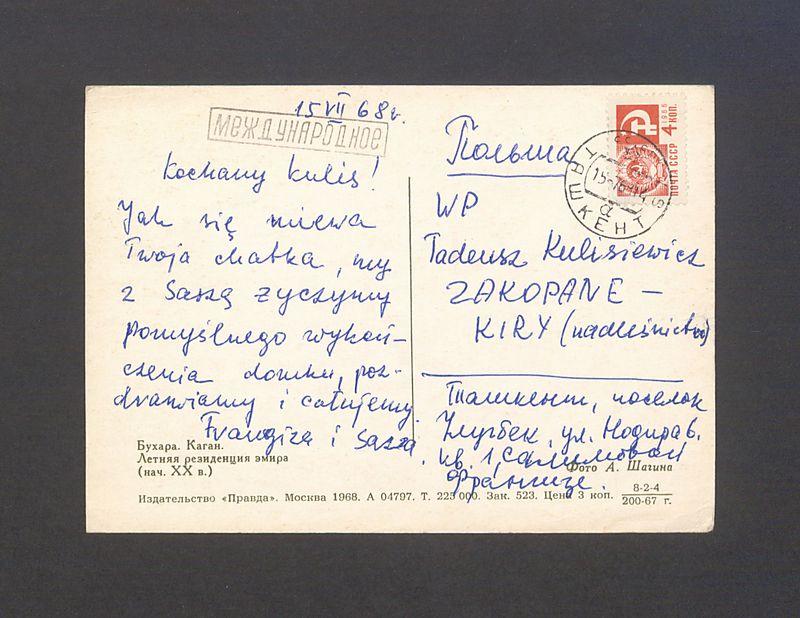 15 VII 68r.
МЕЖДУНАРОДНОЕ
Kochany Kulis!
Jak się miewa
Twoja chatka, my
z Saszą życzymy
pomyślnego wykoń-
czenia domku, poz-
drawiamy i całujemy
Frangiza i Sasza
Бухара. Каган.
Летняя резиденция эмира
(нач. XX в.)
Издательство «Правда». Москва 1968. А 04797. Т. 225 000. Зак. 523. Цена 3 коп.
8-2-4
200-67 г.
1966
4 КОП.
ПОЧТА СССР
ТАШКЕНТ
Польша
WP
Tadeusz Kulisiewicz
ZAKOPANE –
KIRY (nadleśnictwo)
Ташкент, поселок
Улугбек, ул. Нодира 6.
кв. 1, Салимовой
Франгизе.
Фото А. Шагина